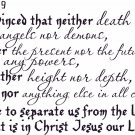 9
vinced that neither death
angels nor demons,
er the present nor the future
any powers,
either height nor depth,
nor anything else in all c
e to separate us from the l
at is in Christ Jesus our